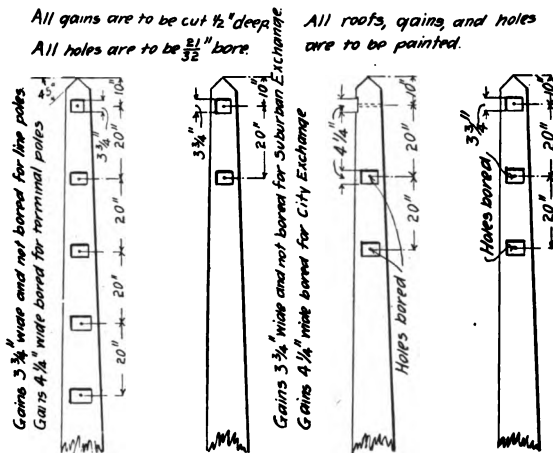 All gains are to be cut 1/2" deep.
All holes are to be 21/32" bore.
All roofs, gains, and holes
are to be painted.
Gains 3 3/4" wide and not bored for line poles.
Gains 4 1/4" wide bored for terminal poles
45°
10"
3 3/4"
20"
20"
20"
20"
10"
3 3/4"
20"
Gains 3 3/4" wide and not bored for Suburban Exchange.
Gains 4 1/4" wide bored for City Exchange
10"
4 1/4"
20"
20"
Holes bored
10"
3 3/4"
20"
20"
Holes bored